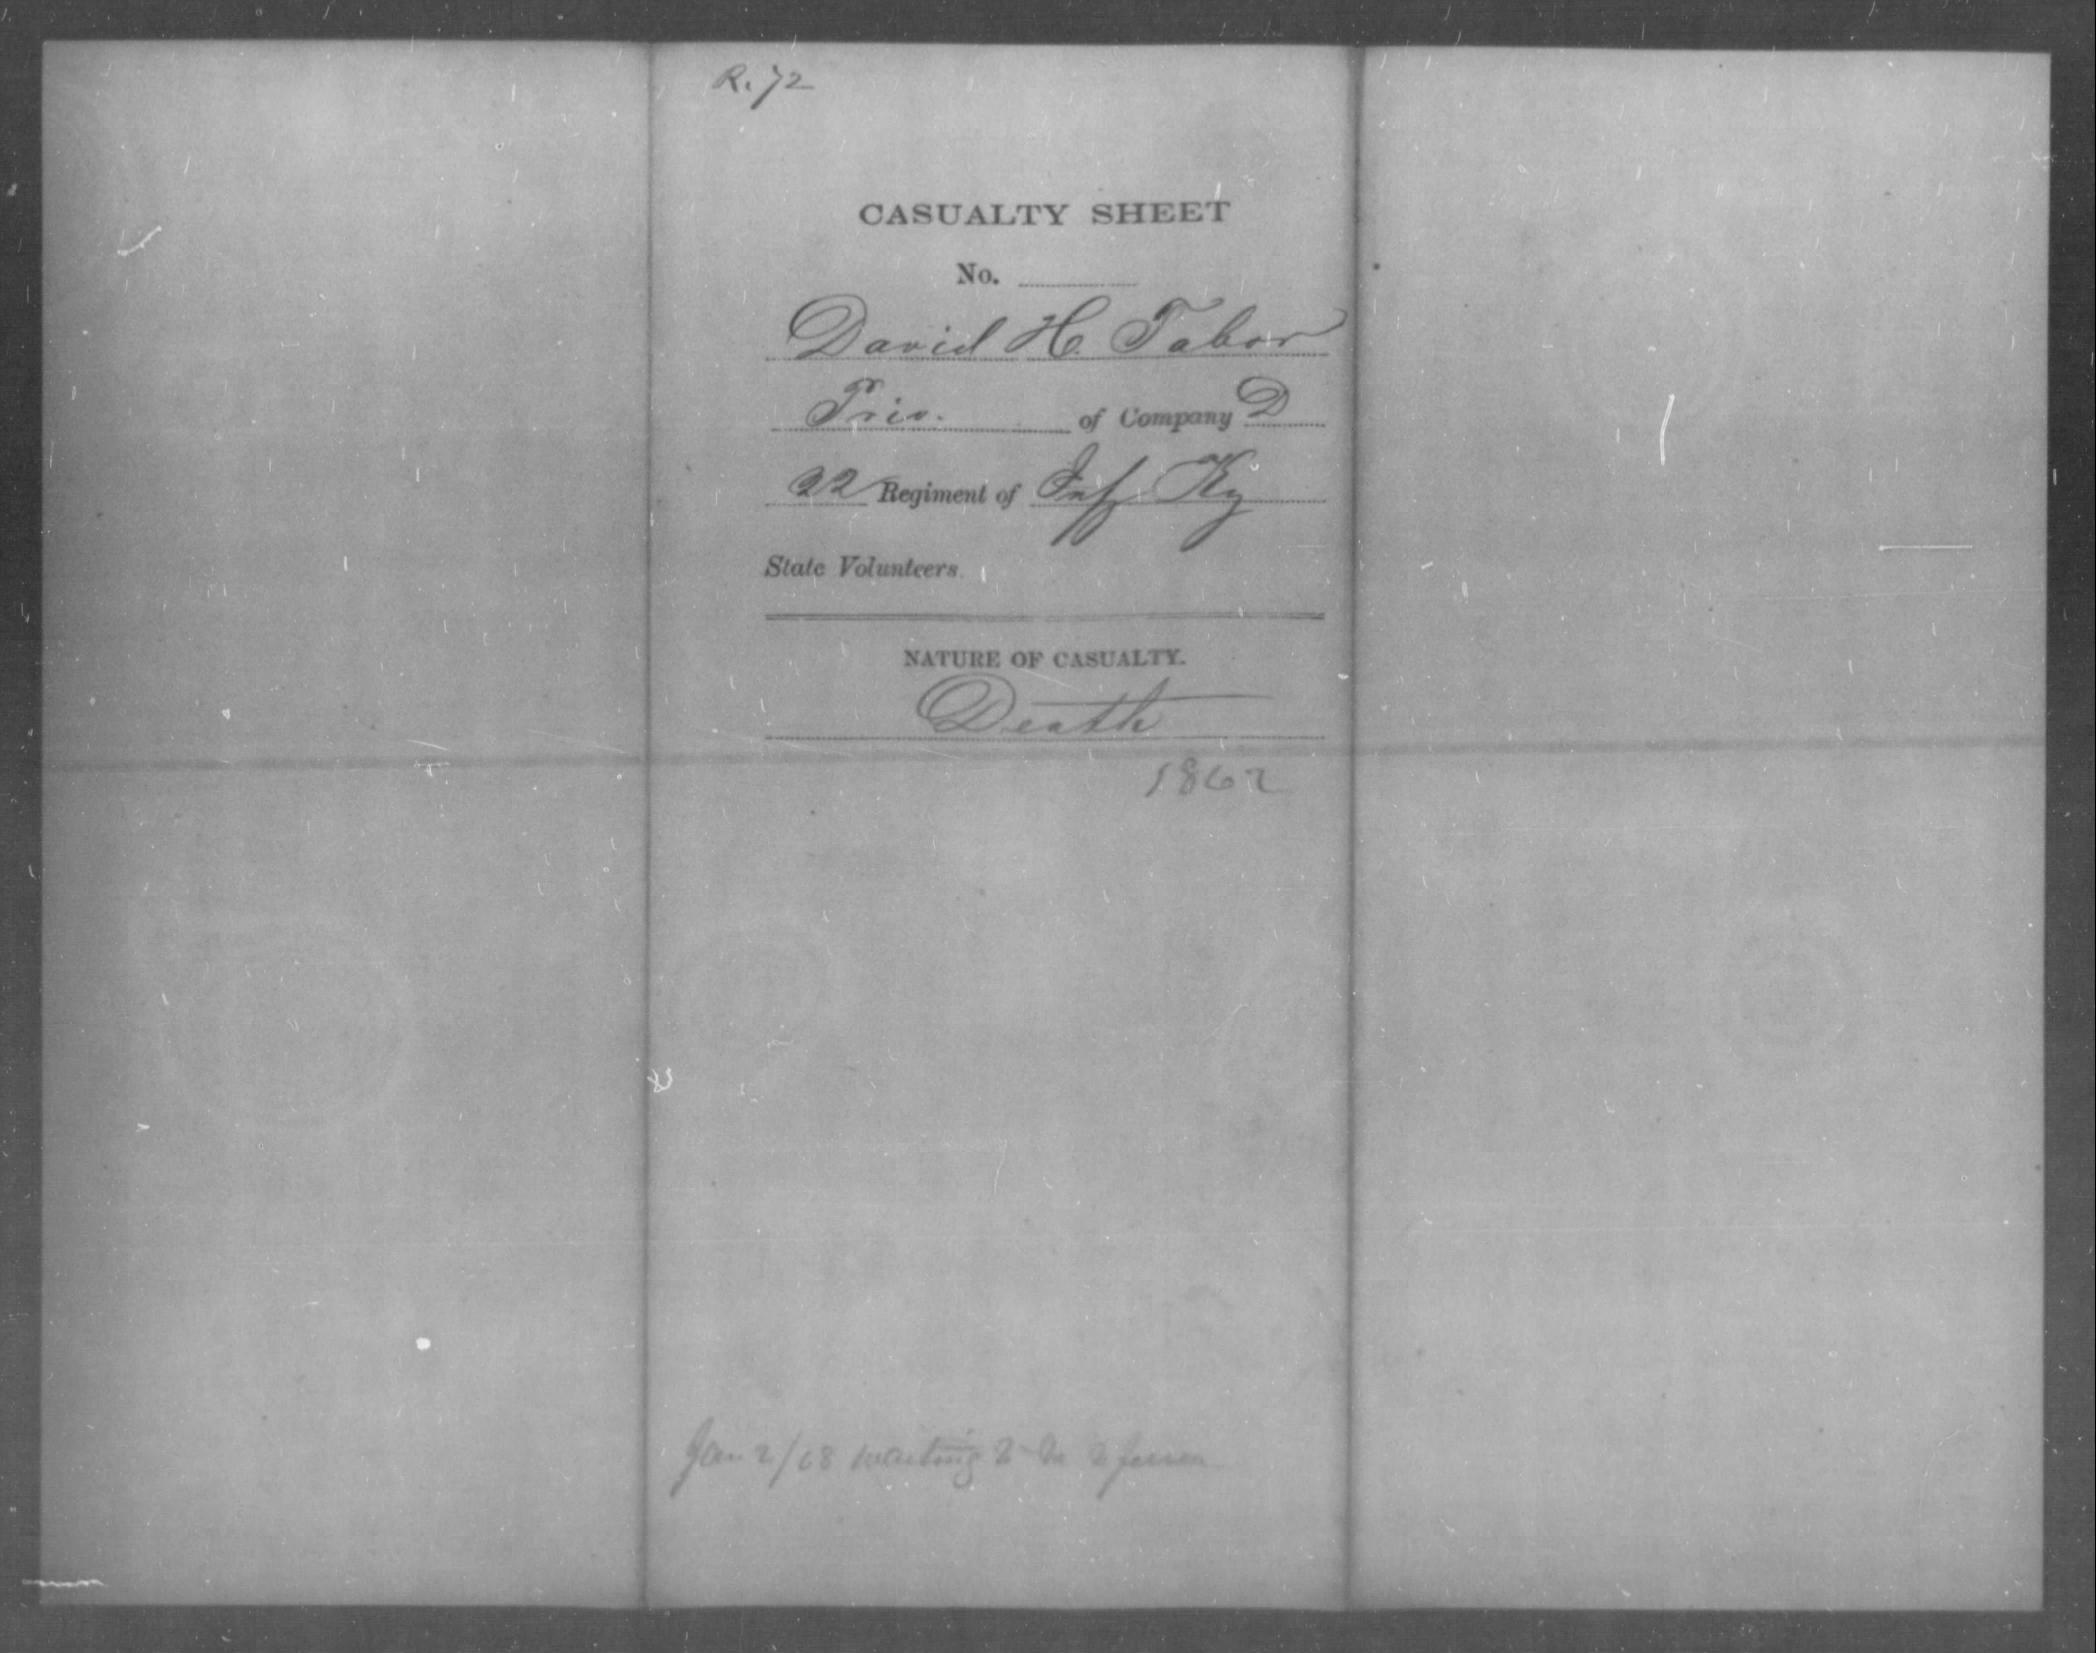 R. 72
CASUALTY SHEET
No.
David H. Tabor
Priv. of Company D
22 Regiment of Inf Ky
State Volunteers.
NATURE OF CASUALTY.
Death
1862
Jan 2/68 waiting